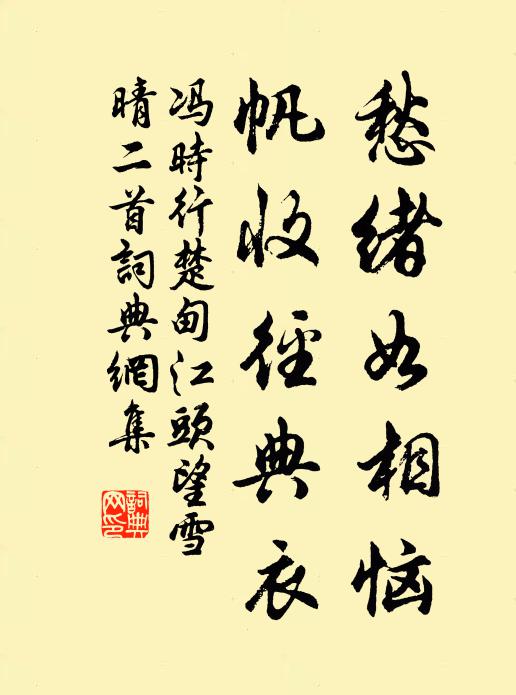 愁绪如相恼
帆收径典衣
冯時行楚甸江頭望雪
晴二首詞典網集
詞典
网印